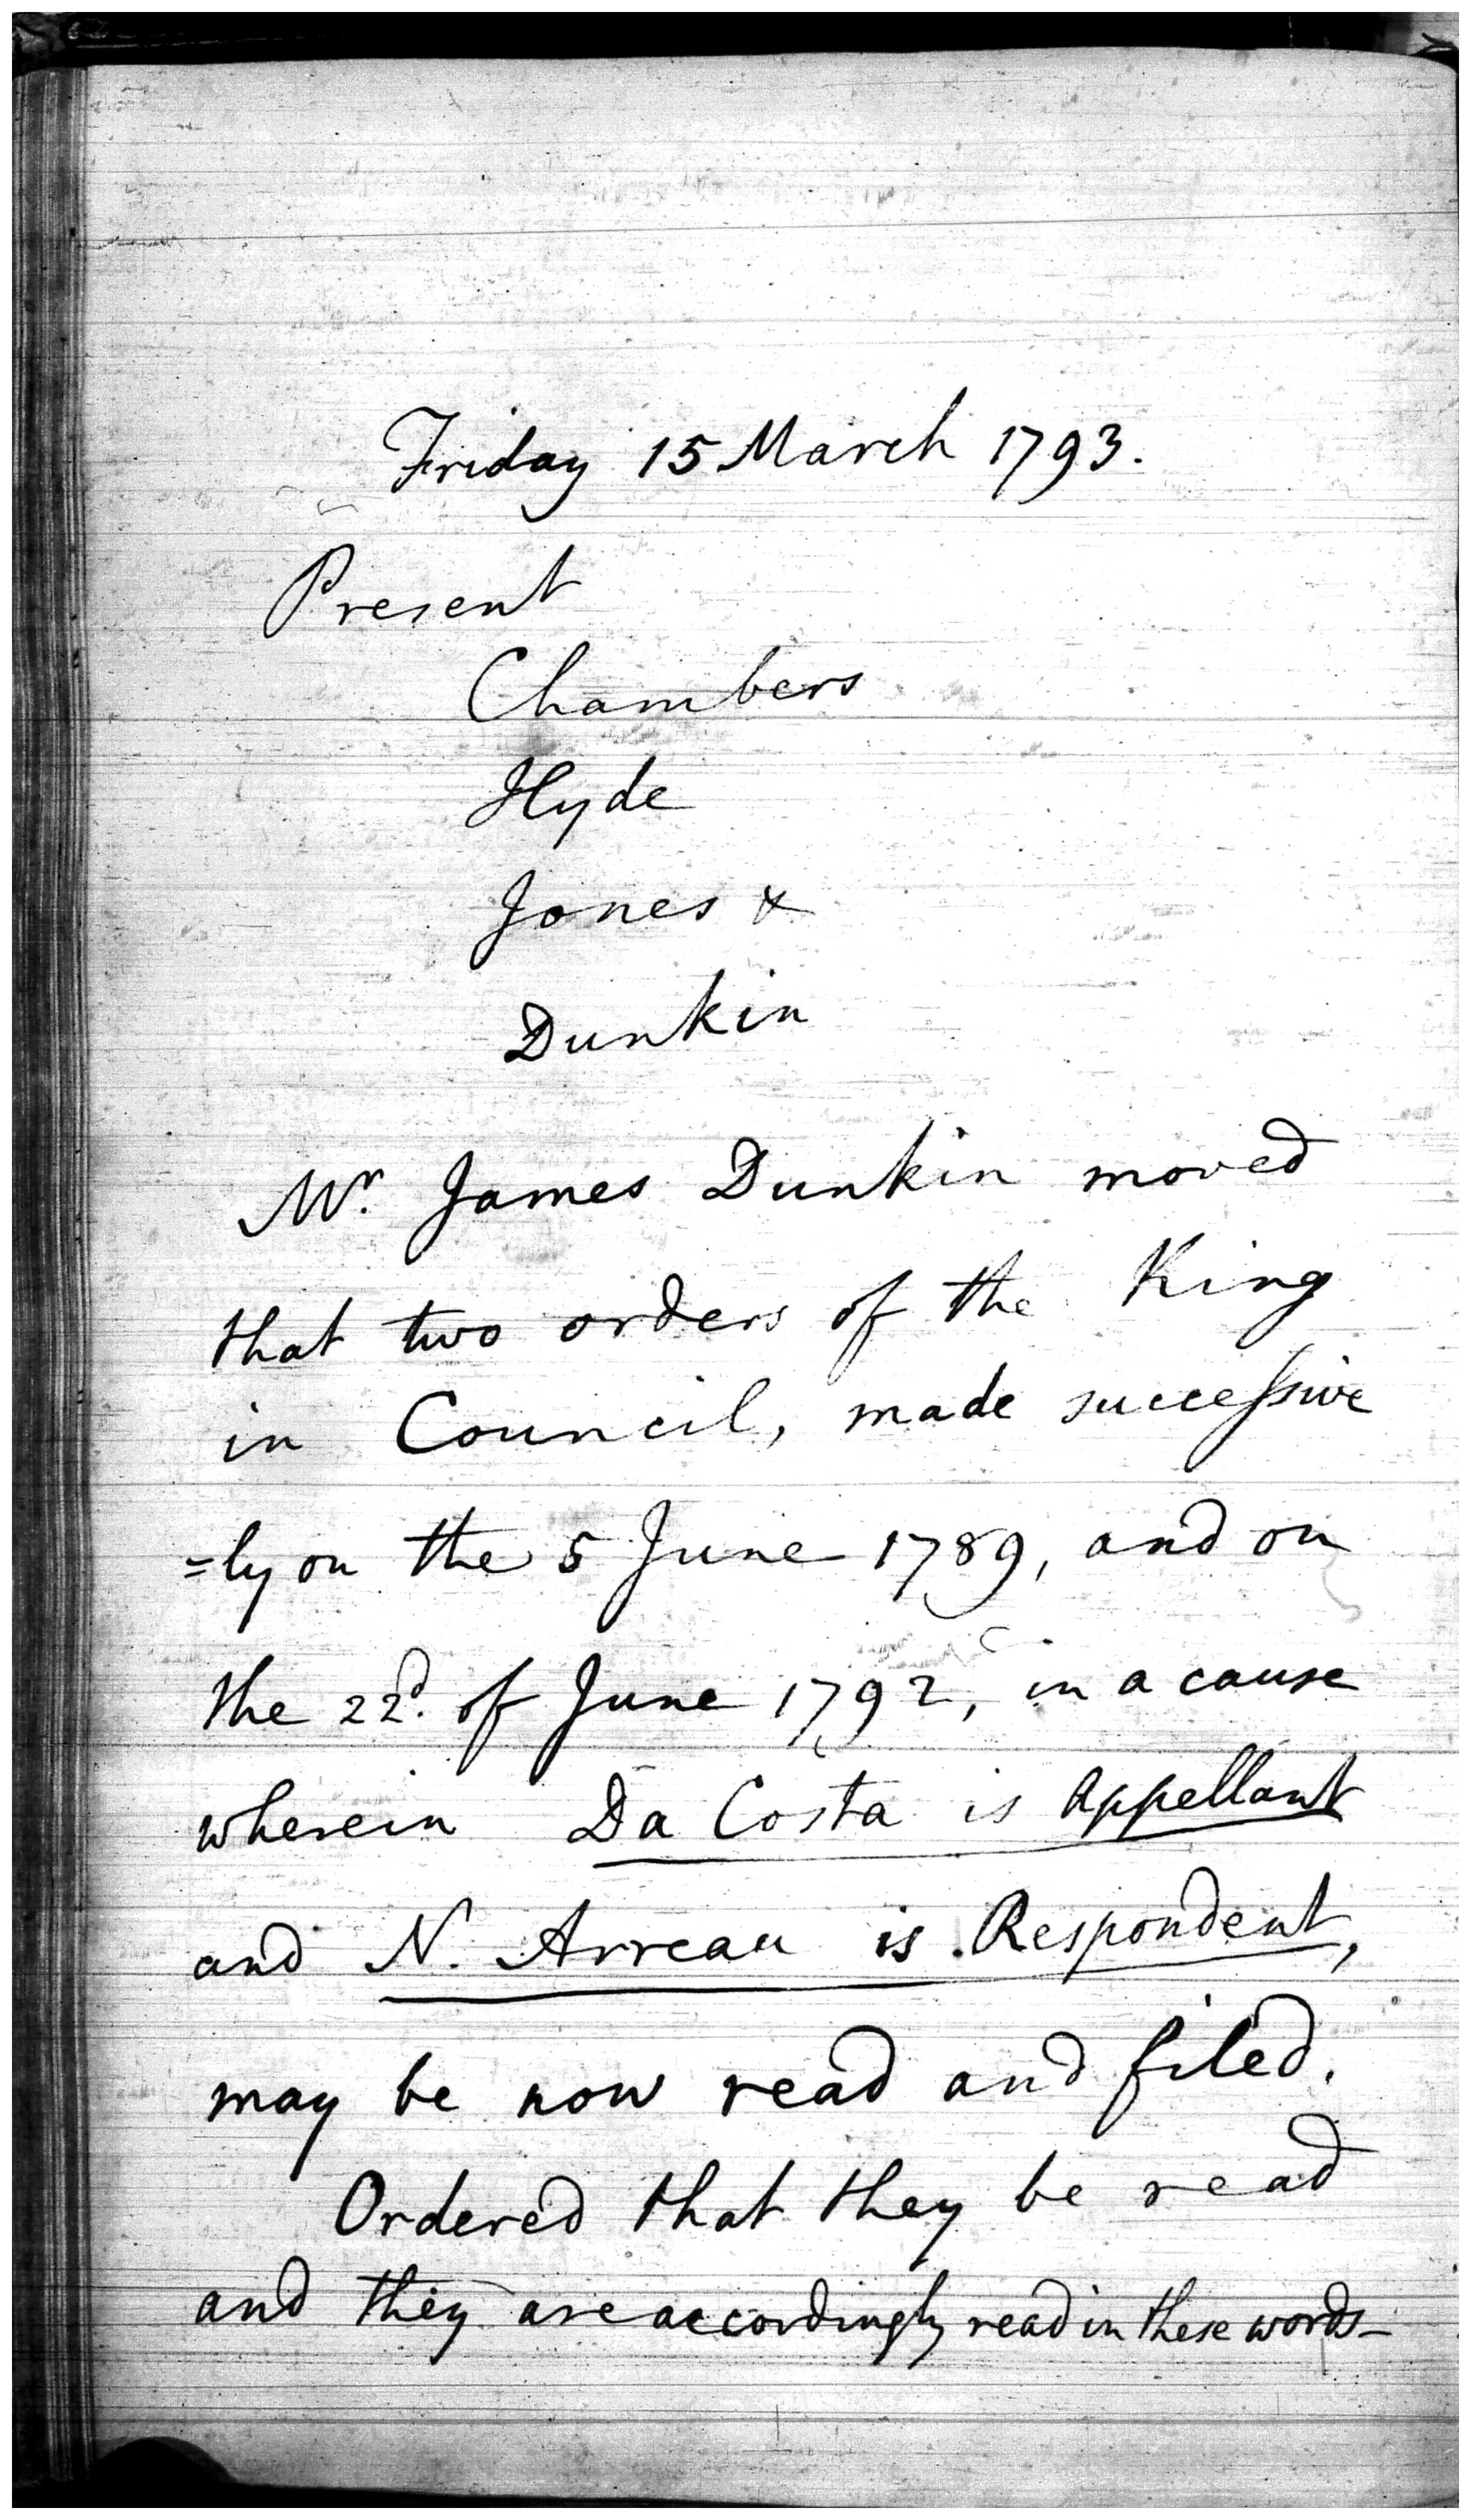 Friday 15 March 1793.
Present
Chambers
Hyde
Jones &
Dunkin
Mr. James Dunkin moved
that two orders of the King
in Council, made successive
=ly on the 5 June 1789, and on
the 22d. of June 1792, in a cause
wherein Da Costa is Appellant
and N. Arreau is Respondent,
may be now read and filed.
Ordered that they be read
and they are accordingly read in these words—